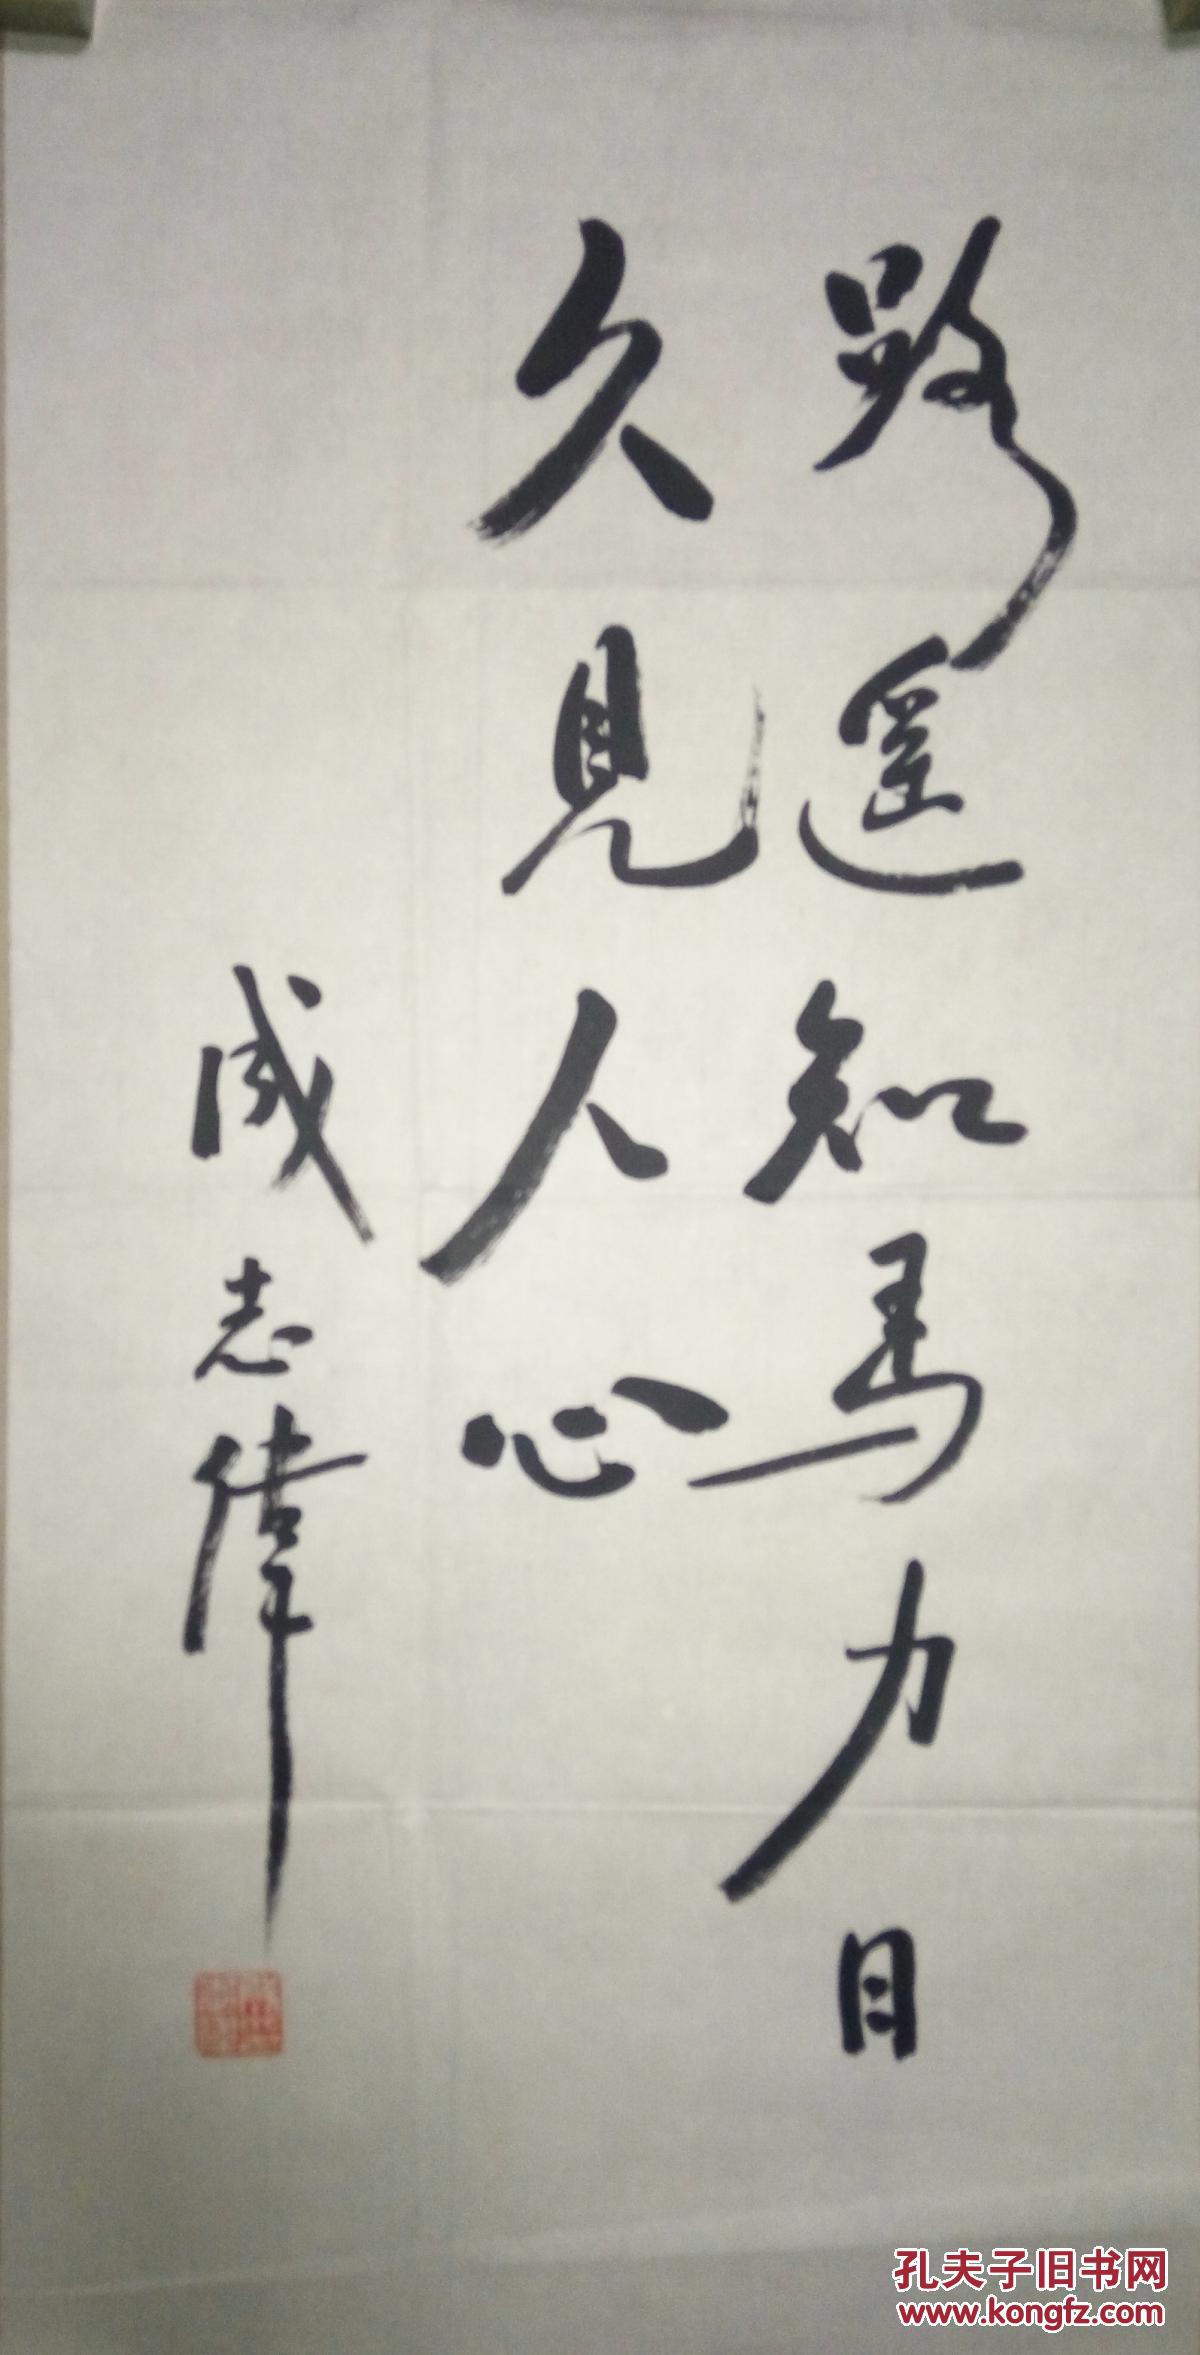 路遥知馬力日
久見人心
成志偉
孔夫子旧书网
www.kongfz.com